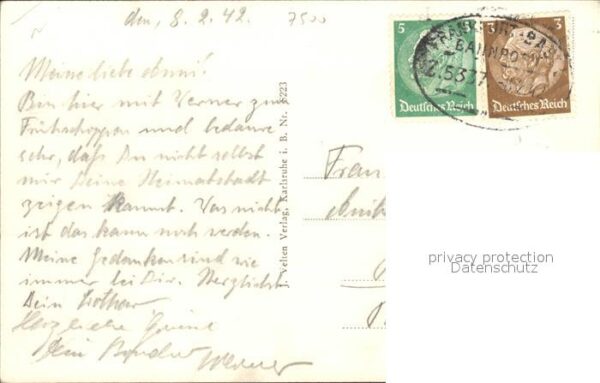 den, 8. 2. 42.
7500
Meine liebe
Bin hier mit Werner zum
Frühschoppen und bedaure
sehr, daß Du nicht selbst
mir Deine Heimatstadt
zeigen kannst. Was nicht
ist das kann noch werden.
Meine Gedanken sind wie
immer bei Dir. Herzlichst
Dein Lothar
Herzliche Grüße
Dein Bruder
Werner
J. Velten Verlag, Karlsruhe i. B. Nr. 8223
5
Deutsches Reich
3 3
Deutsches Reich
BAHNPOST
Frau
privacy protection
Datenschutz